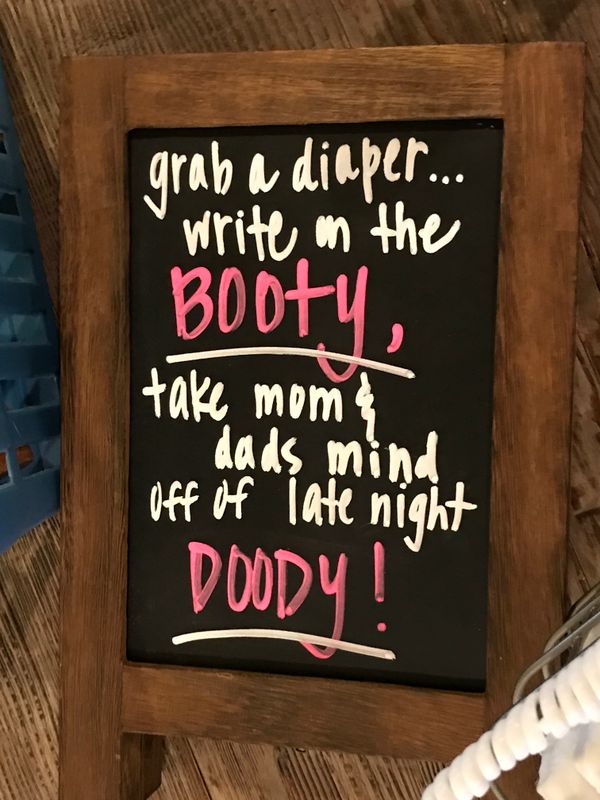 grab a diaper...
write on the
BOOty,
take mom &
dads mind
off of late night
DOODy!